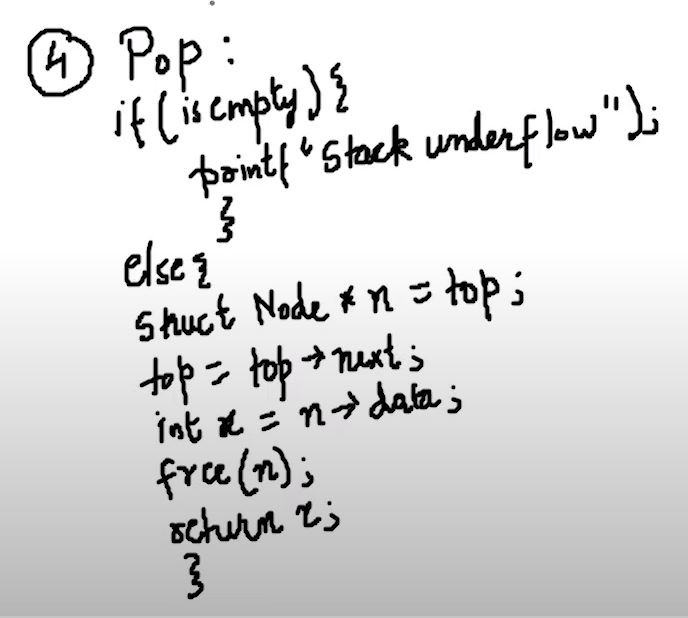 ④ Pop :
if (is empty) {
printf "Stack underflow");
}
else {
struct Node * n = top;
top = top → next;
int x = n → data;
free (n);
return x;
}